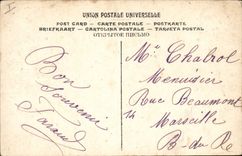 UNION POSTALE UNIVERSELLE
POST CARD — CARTE POSTALE — POSTKARTE
BRIEFKAART — CARTOLINA POSTALE — TARJETA POSTAL
ОТКРЫТОЕ ПИСЬМО
Bon
Souvenir
Mr Chabrol
Menuisier
Rue Beaumont
14
Marseille
B-du-R